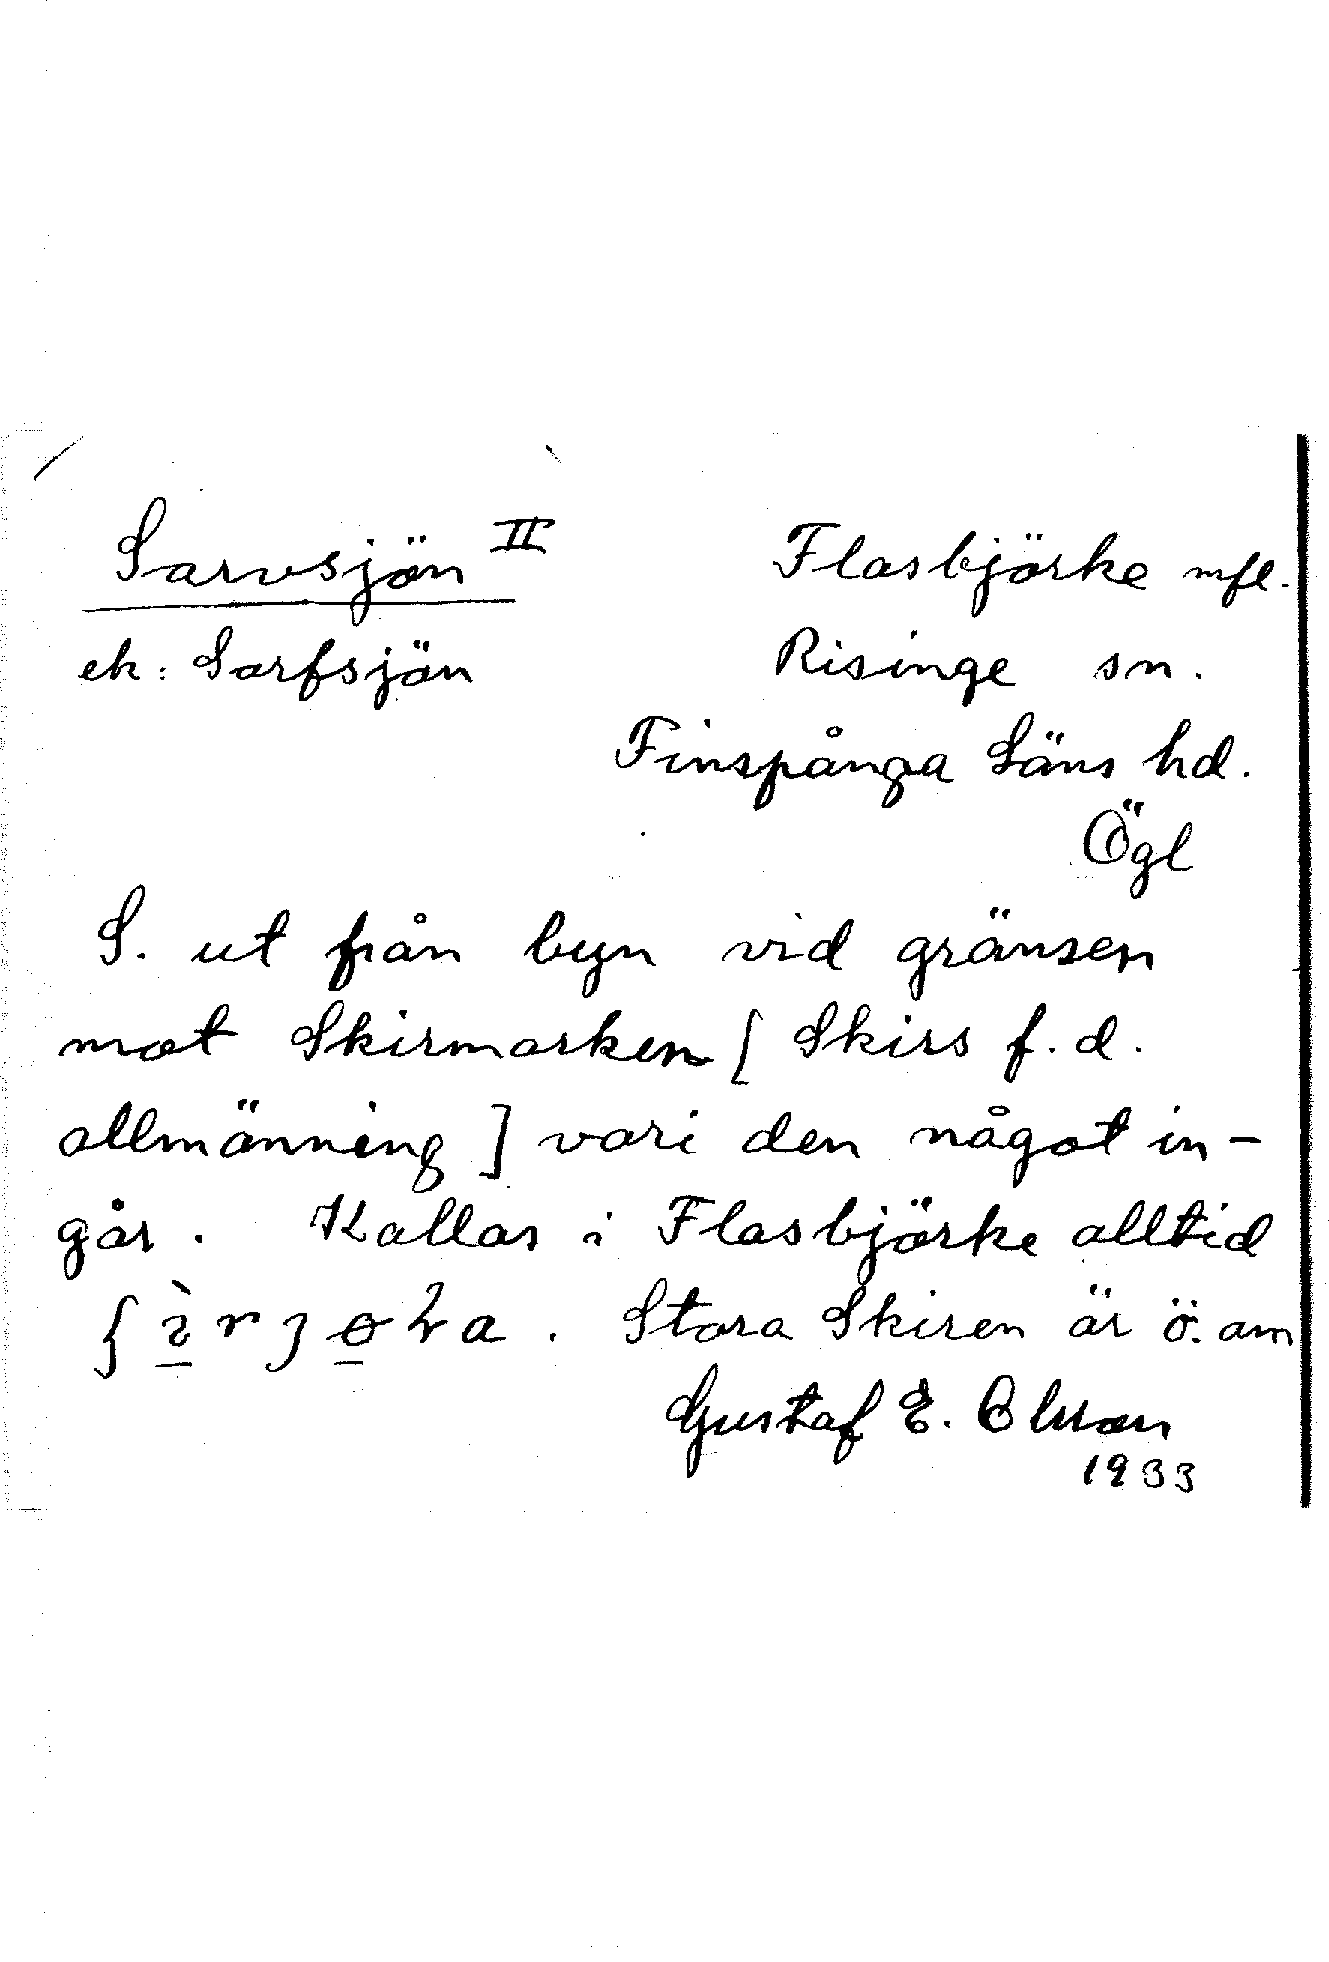 Sarvsjön II
Flasbjörke mfl.
ek: Sarfsjön
Risinge sn.
Finspånga Läns hd.
Ögl
S. ut från byn vid gränsen
mot Skirmarken [ Skirs f. d.
allmänning ] vari den något in-
går. Kallas i Flasbjörke alltid
Stora Skiren är ö. om
Gustaf E. Olsson
1933